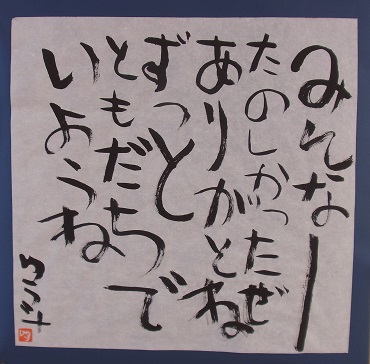 みんなー
たのしかったぜ
ありがとね
ずっと
ともだちで
いようね